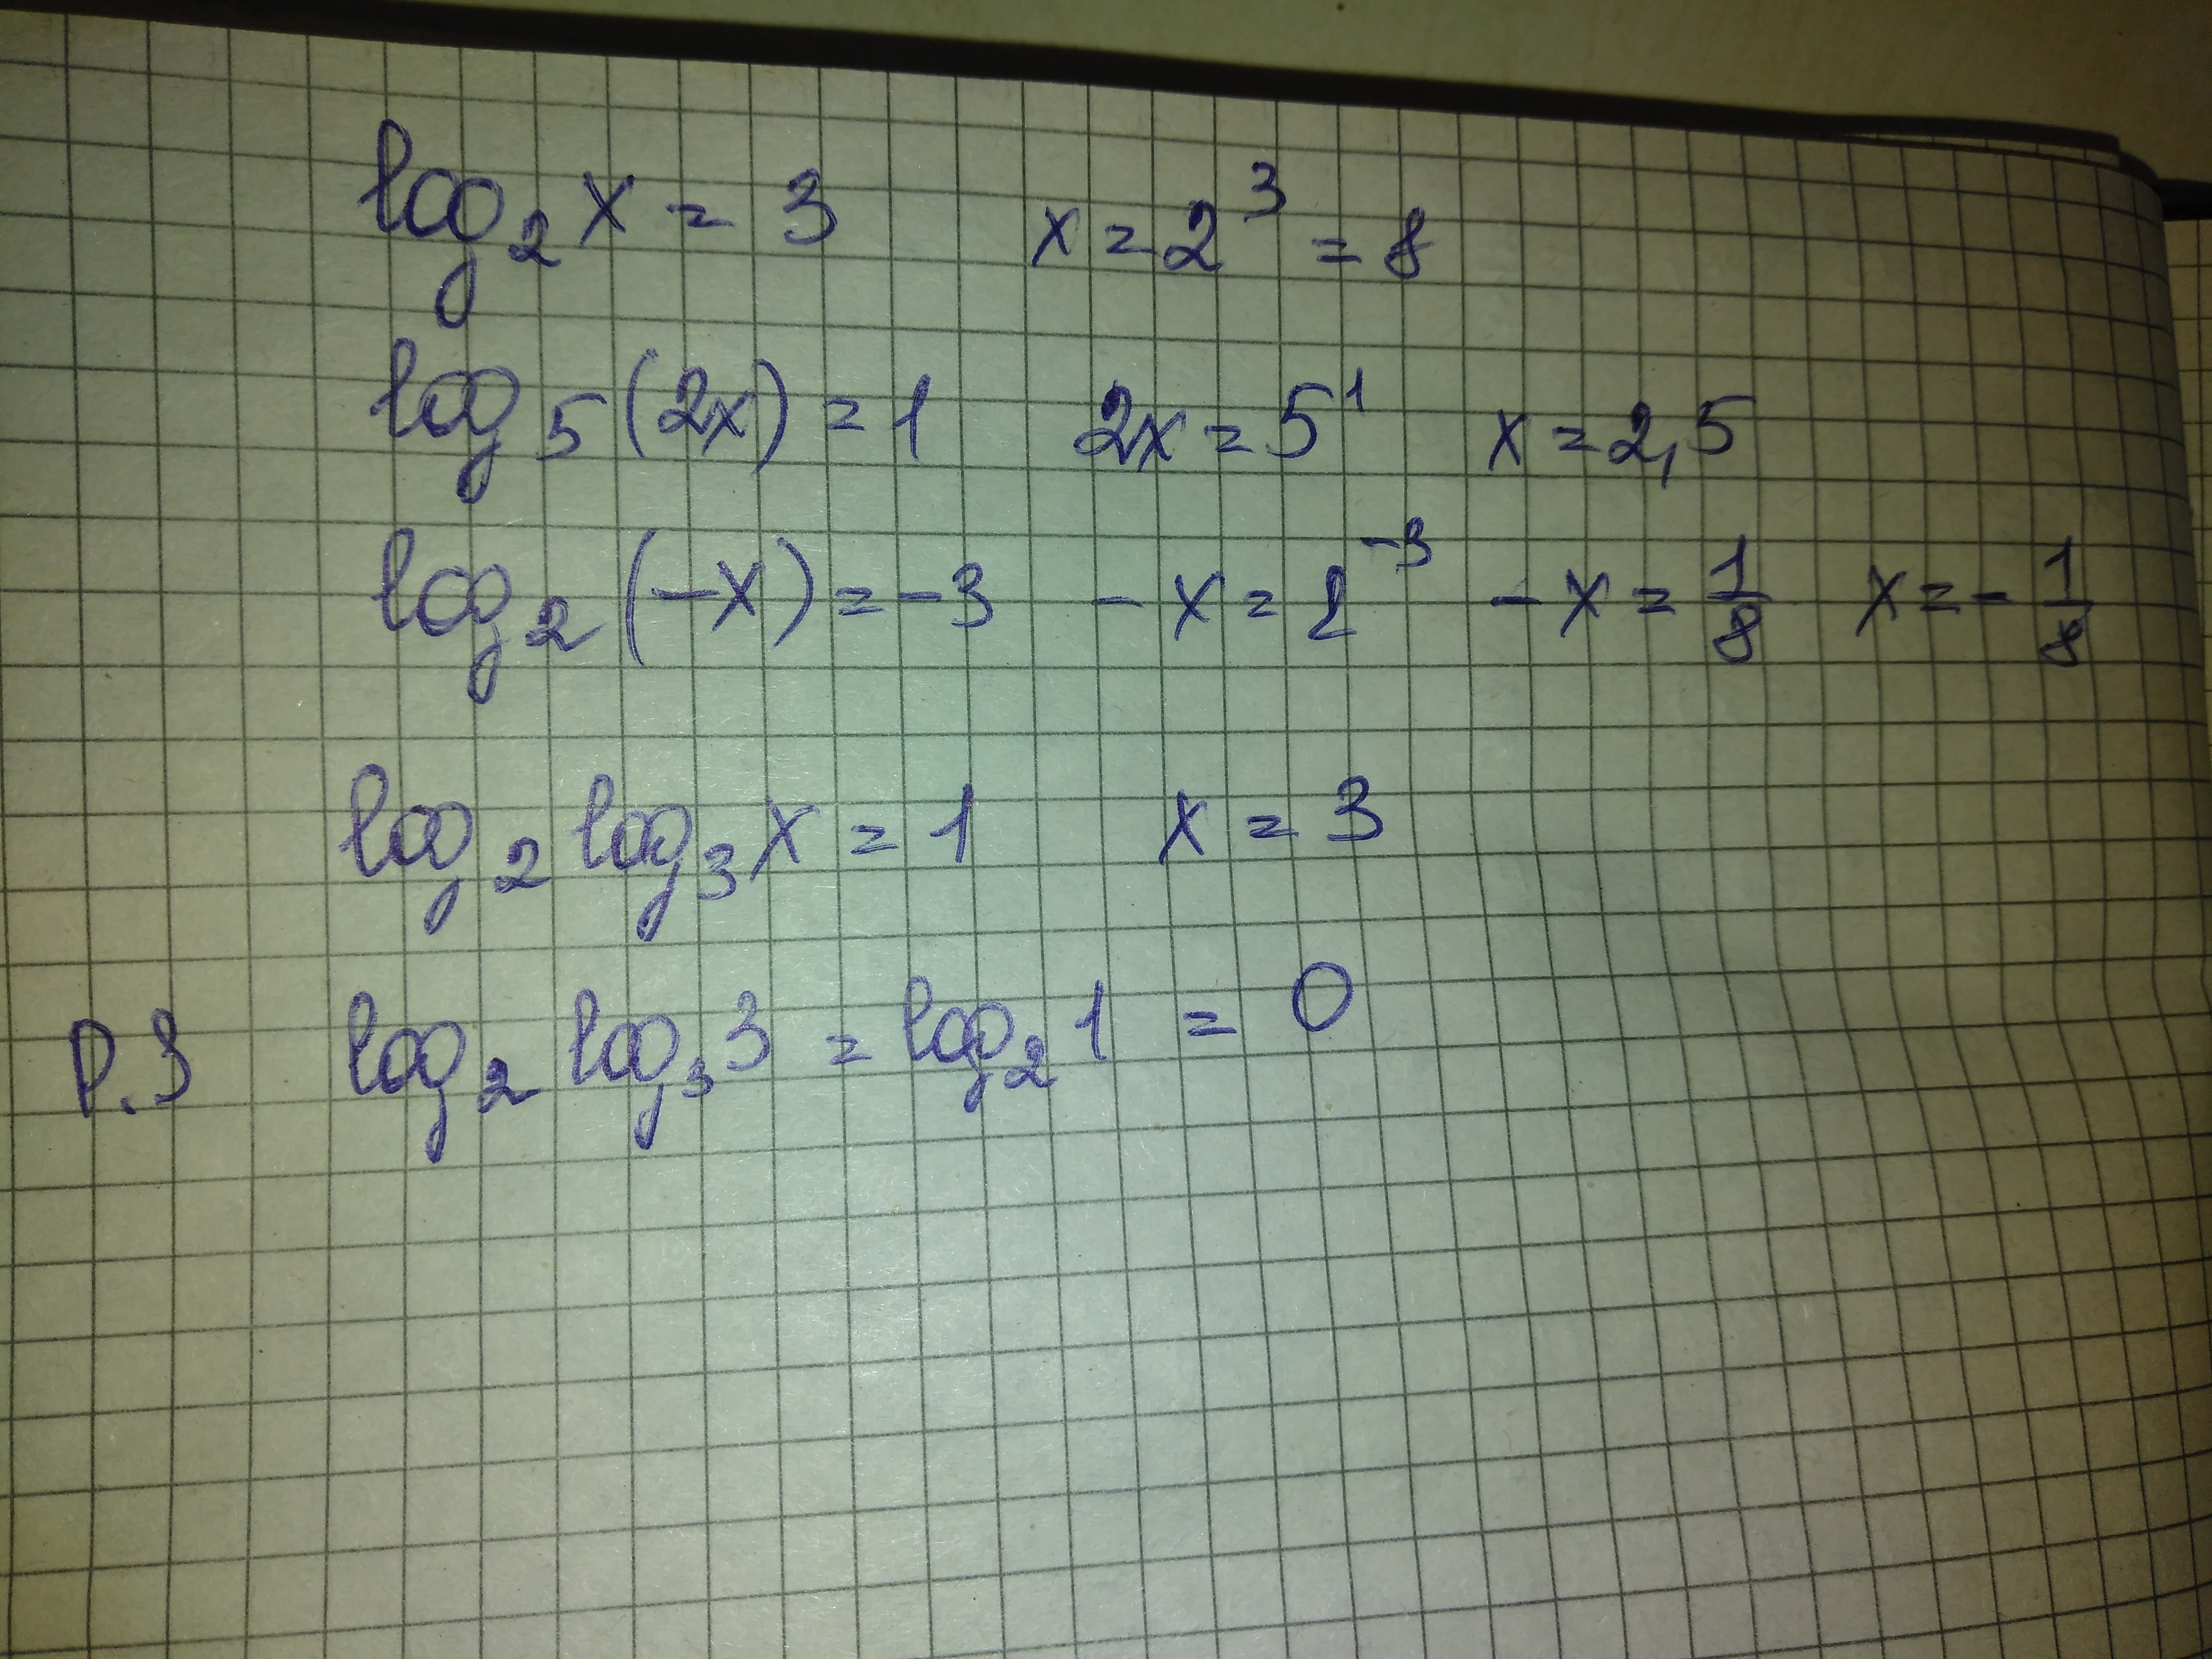 log₂x = 3 x = 2³ = 8
log₅(2x) = 1 2x = 5¹ x = 2,5
log₂(-x) = -3 -x = 2⁻³ -x = 1/8 x = -1/8
log₂ log₃ x = 1 x = 3
P.3 log₂ log₃ 3 = log₂ 1 = 0